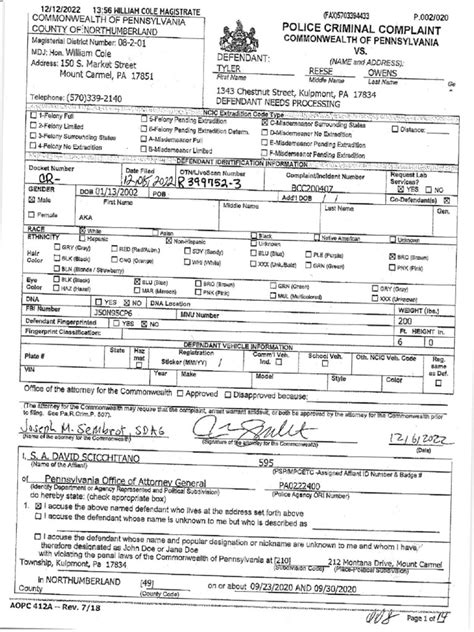 12/12/2022 13:56 HILLIAH COLE MAGISTRATE (FAX)05703394433 P.002/020
COMMONWEALTH OF PENNSYLVANIA
COUNTY OF NORTHUMBERLAND
Magisterial District Number: 08-2-01
MDJ: Hon. William Cole
Address: 150 S. Market Street
Mount Carmel, PA 17851
Telephone: (570)339-2140
POLICE CRIMINAL COMPLAINT
COMMONWEALTH OF PENNSYLVANIA
VS.
DEFENDANT: (NAME and ADDRESS):
TYLER REESE OWENS
First Name Middle Name Last Name Ge
1343 Chestnut Street, Kulpmont, PA 17834
DEFENDANT NEEDS PROCESSING
NCIC Extradition Code Type
1-Felony Full 5-Felony Pending Extradition C-Misdemeanor Surrounding States Distance:
2-Felony Limited 6-Felony Pending Extradition Determ. D-Misdemeanor No Extradition
3-Felony Surrounding States A-Misdemeanor Full E-Misdemeanor Pending Extradition
4-Felony No Extradition B-Misdemeanor Limited
DEFENDANT IDENTIFICATION INFORMATION
Docket Number Date Filed OTN/LiveScan Number Complaint/Incident Number Request Lab Services?
CR- 12-06-2022 R 399952-3 BCC200407 YES NO
GENDER DOB 01/13/2002 Add'l DOB Co-Defendant(s)
Male First Name Middle Name Last Name Gen.
Female AKA
RACE White Asian Black Native American Unknown
ETHNICITY Hispanic Non-Hispanic Unknown
Hair Color GRY (Gray) RED (Red/Aubn.) SDY (Sandy) BLU (Blue) PLE (Purple) BRO (Brown)
BLK (Black) ONG (Orange) WHI (White) XXX (Unk./Bald) GRN (Green) PNK (Pink)
BLN (Blonde / Strawberry)
Eye Color BLK (Black) BLU (Blue) BRO (Brown) GRN (Green) GRY (Gray)
HAZ (Hazel) MAR (Maroon) PNK (Pink) MUL (Multicolored) XXX (Unknown)
DNA YES NO DNA Location WEIGHT (lbs.)
FBI Number JS0N95CP6 MNU Number 200
Defendant Fingerprinted YES NO Ft. HEIGHT In.
Fingerprint Classification: 6 0
DEFENDANT VEHICLE INFORMATION
Plate # State Hazmat Registration Sticker (MM/YY) Comm'l Veh. Ind. School Veh. Oth. NCIC Veh. Code Reg. same as Def.
VIN Year Make Model Style Color
Office of the attorney for the Commonwealth Approved Disapproved because:
(The attorney for the Commonwealth may require that the complaint, arrest warrant affidavit, or both be approved by the attorney for the Commonwealth prior
to filing. See Pa.R.Crim.P. 507).
Joseph M. Sembrot, SDAG 12/6/2022
(Name of the attorney for the Commonwealth) (Signature of the attorney for the Commonwealth) (Date)
I, S. A. DAVID SCICCHITANO 595
(Name of the Affiant) PSP/MPOETC -Assigned Affiant ID Number & Badge #
of Pennsylvania Office of Attorney General PA0222400
(Identify Department or Agency Represented and Political Subdivision) (Police Agency ORI Number)
do hereby state: (check appropriate box)
1. I accuse the above named defendant who lives at the address set forth above
I accuse the defendant whose name is unknown to me but who is described as
I accuse the defendant whose name and popular designation or nickname are unknown to me and whom I have
therefore designated as John Doe or Jane Doe
with violating the penal laws of the Commonwealth of Pennsylvania at [210] 212 Montana Drive, Mount Carmel
Township, Kulpmont, Pa 17834 (Subdivision Code) (Place-Political Subdivision)
in NORTHUMBERLAND County [49] on or about 09/23/2020 AND 09/30/2020
AOPC 412A – Rev. 7/18 Page 1 of 14